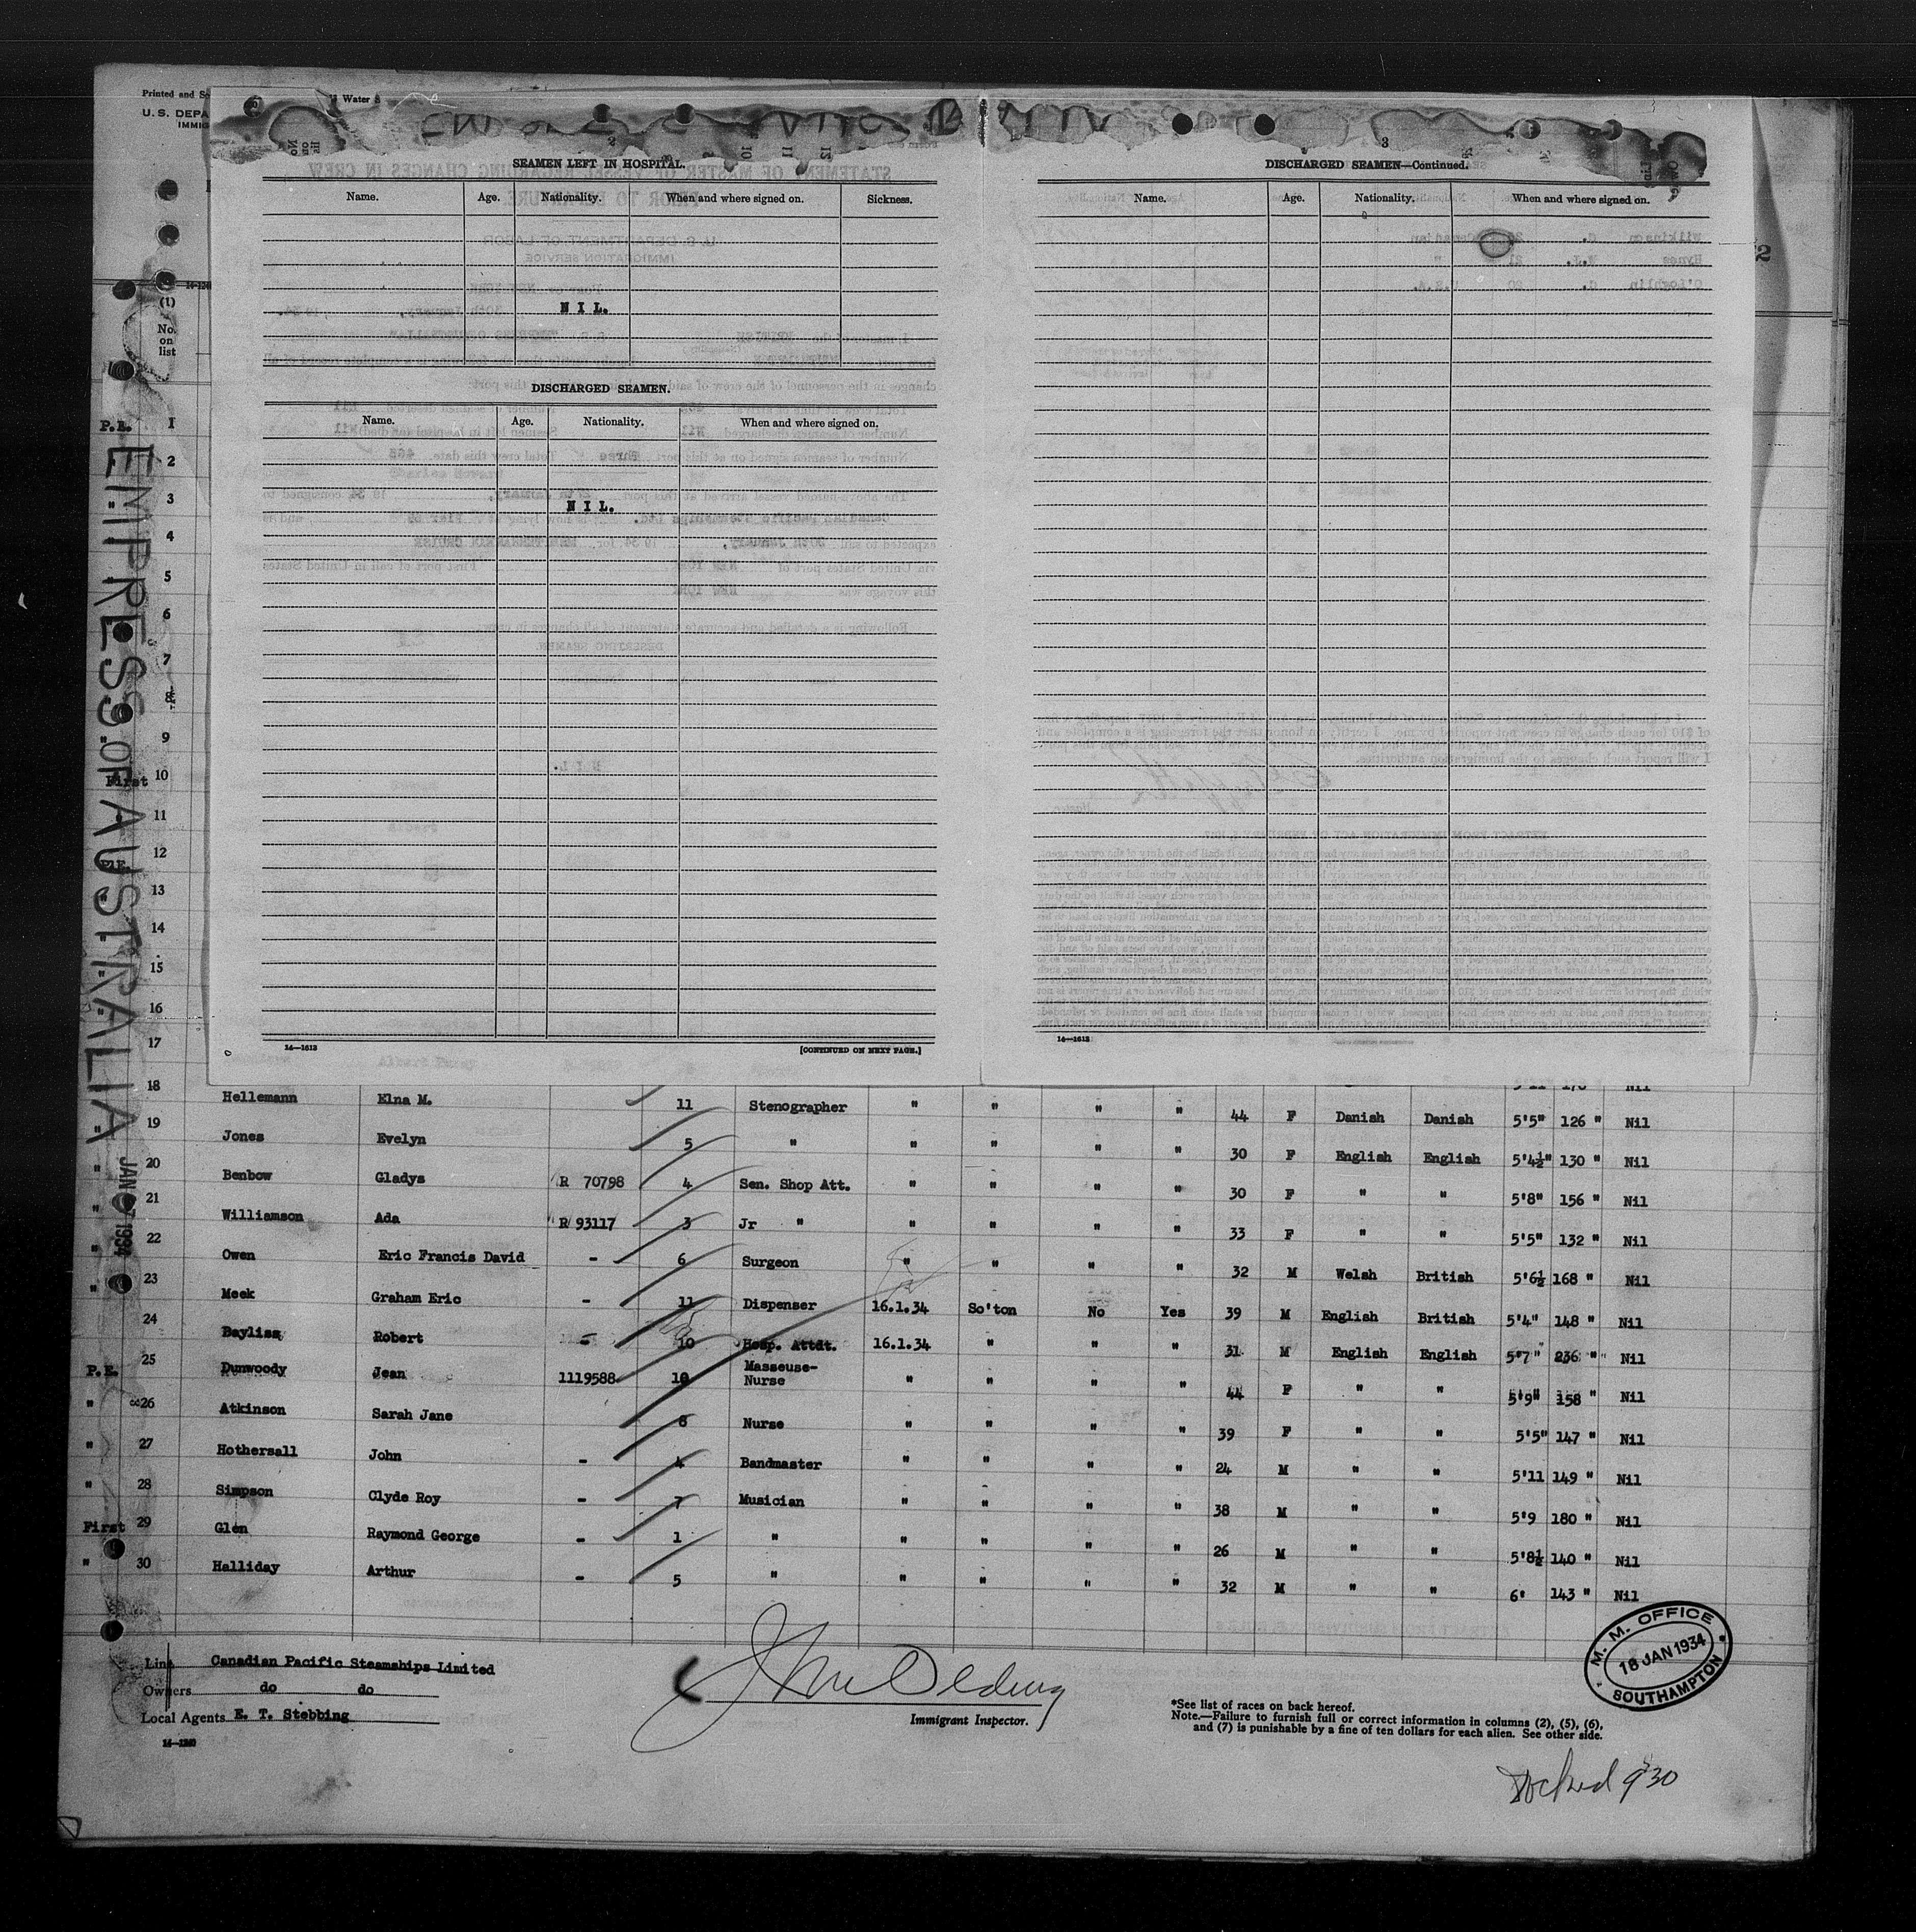 Printed and So
Water S
U. S. DEPA
IMMIG
SEAMEN LEFT IN HOSPITAL.
Name. Age. Nationality. When and where signed on. Sickness.
N I L.
DISCHARGED SEAMEN.
Name. Age. Nationality. When and where signed on.
N I L.
14—1613 [CONTINUED ON NEXT PAGE.]
3
DISCHARGED SEAMEN—Continued.
Name. Age. Nationality. When and where signed on.
14—1613
EMPRESS OF AUSTRALIA
JAN 27 1934
(1)
No.
on
list
P.E. 1
2
3
4
5
6
7
8
9
First 10
11
P.E. 12
" 13
" 14
" 15
" 16
" 17
18 Hellemann Elna M. 11 Stenographer " " " " 44 F Danish Danish 5'5" 126 " Nil
" 19 Jones Evelyn 5 " " " " " 30 F English English 5'4½" 130 " Nil
" 20 Benbow Gladys R 70798 4 Sen. Shop Att. " " " " 30 F " " 5'8" 156 " Nil
" 21 Williamson Ada R 93117 3 Jr " " " " " 33 F " " 5'5" 132 " Nil
" 22 Owen Eric Francis David - 6 Surgeon " " " " 32 M Welsh British 5'6½ 168 " Nil
" 23 Meek Graham Eric - 11 Dispenser 16.1.34 So'ton No Yes 39 M English British 5'4" 148 " Nil
24 Bayliss Robert - 10 Hosp. Attdt. 16.1.34 " " " 31 M English English 5'7" 236 " Nil
P.E. 25 Dunwoody Jean 1119588 10 Masseuse-
Nurse " " " " 44 F " " 5'9" 158 " Nil
" 26 Atkinson Sarah Jane 8 Nurse " " " " 39 F " " 5'5" 147 " Nil
" 27 Hothersall John - 4 Bandmaster " " " " 24 M " " 5'11 149 " Nil
" 28 Simpson Clyde Roy - 7 Musician " " " " 38 M " " 5'9 180 " Nil
First 29 Glen Raymond George - 1 " " " " " 26 M " " 5'8½ 140 " Nil
" 30 Halliday Arthur - 5 " " " " " 32 M " " 6' 143 " Nil
Line Canadian Pacific Steamships Limited
Owners do do
Local Agents E. T. Stebbing
14—1240
Immigrant Inspector.
*See list of races on back hereof.
Note.—Failure to furnish full or correct information in columns (2), (5), (6),
and (7) is punishable by a fine of ten dollars for each alien. See other side.
M. M. OFFICE
18 JAN 1934
SOUTHAMPTON
Docked 9 30